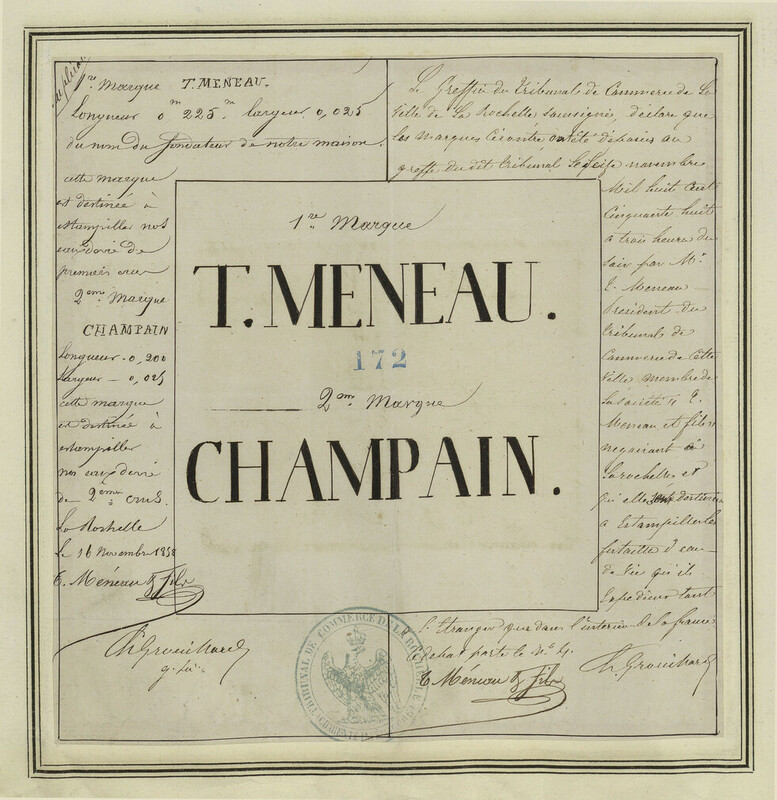 Duplicata
1re Marque T. MENEAU.
Longueur 0m 225. largeur 0,m025
du nom du fondateur de notre maison.
cette marque
est destinée à
estampiller nos
eaux de vie de
premiers crus
2eme Marque
CHAMPAIN
Longueur - 0,200
Largeur - 0,025
cette marque
est destinée à
estampiller
nos eaux de vie
de 2eme crus.
La Rochelle
Le 16 Novembre 1858
T. Méneau & fils
Ch Grouihard
Le Greffier du Tribunal de Commerce de la
Ville de La Rochelle soussigné, déclare que
les marques Ci contre ont été déposées au
greffe du dit tribunal le seize novembre
Mil huit Cent
Cinquante huit
à trois heures du
soir par Mr
T. Meneau
President du
tribunal de
Commerce de cette
Ville membre de
la société T.
Meneau et fils
negociant à
La rochelle et
qu'elles sont destinées
a Estampiller les
futaille d'eau
de Vie qu'ils
Expedient tant
l'Etranger que dans l'interieur de la france
Ce depot porte le No 4.
T. Méneau & fils
Ch Grouihard
1re Marque
T. MENEAU.
172
2me Marque
CHAMPAIN.
TRIBUNAL DE COMMERCE DE LA ROCHELLE